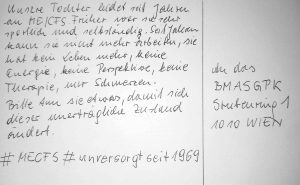 Unsere Tochter leidet seit Jahren
an ME/CFS Früher war sie sehr
sportlich und selbständig. Seit Jahren
kann sie nicht mehr arbeiten, sie
hat kein Leben mehr, keine
Energie, keine Perspektive, keine
Therapie, nur Schmerzen.
Bitte tun Sie etwas, damit sich
dieser unerträgliche Zustand
ändert.
#MECFS #unversorgt seit 1969
An das
BMASGPK
Stubenring 1
1010 WIEN